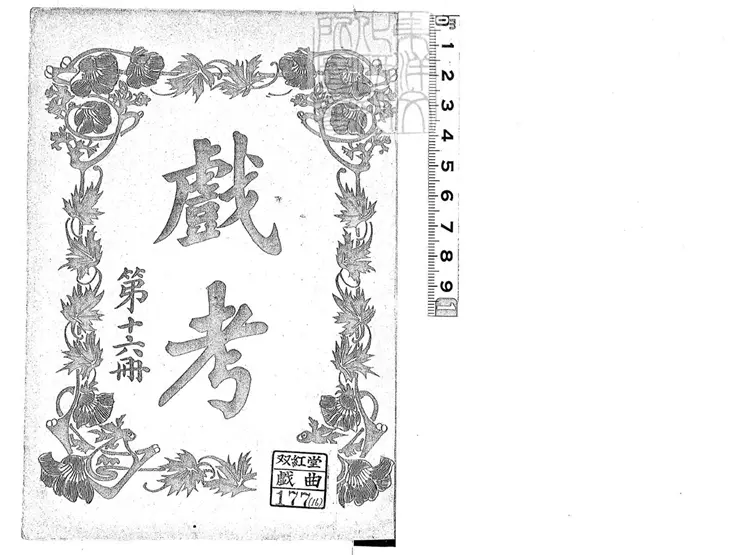 戲考
第十六冊
双紅堂
戲曲
177(16)
0 1 2 3 4 5 6 7 8 9 10